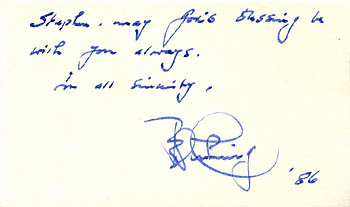 Stephen, may God's Blessing be
with you always.
In all sincerity,
'86